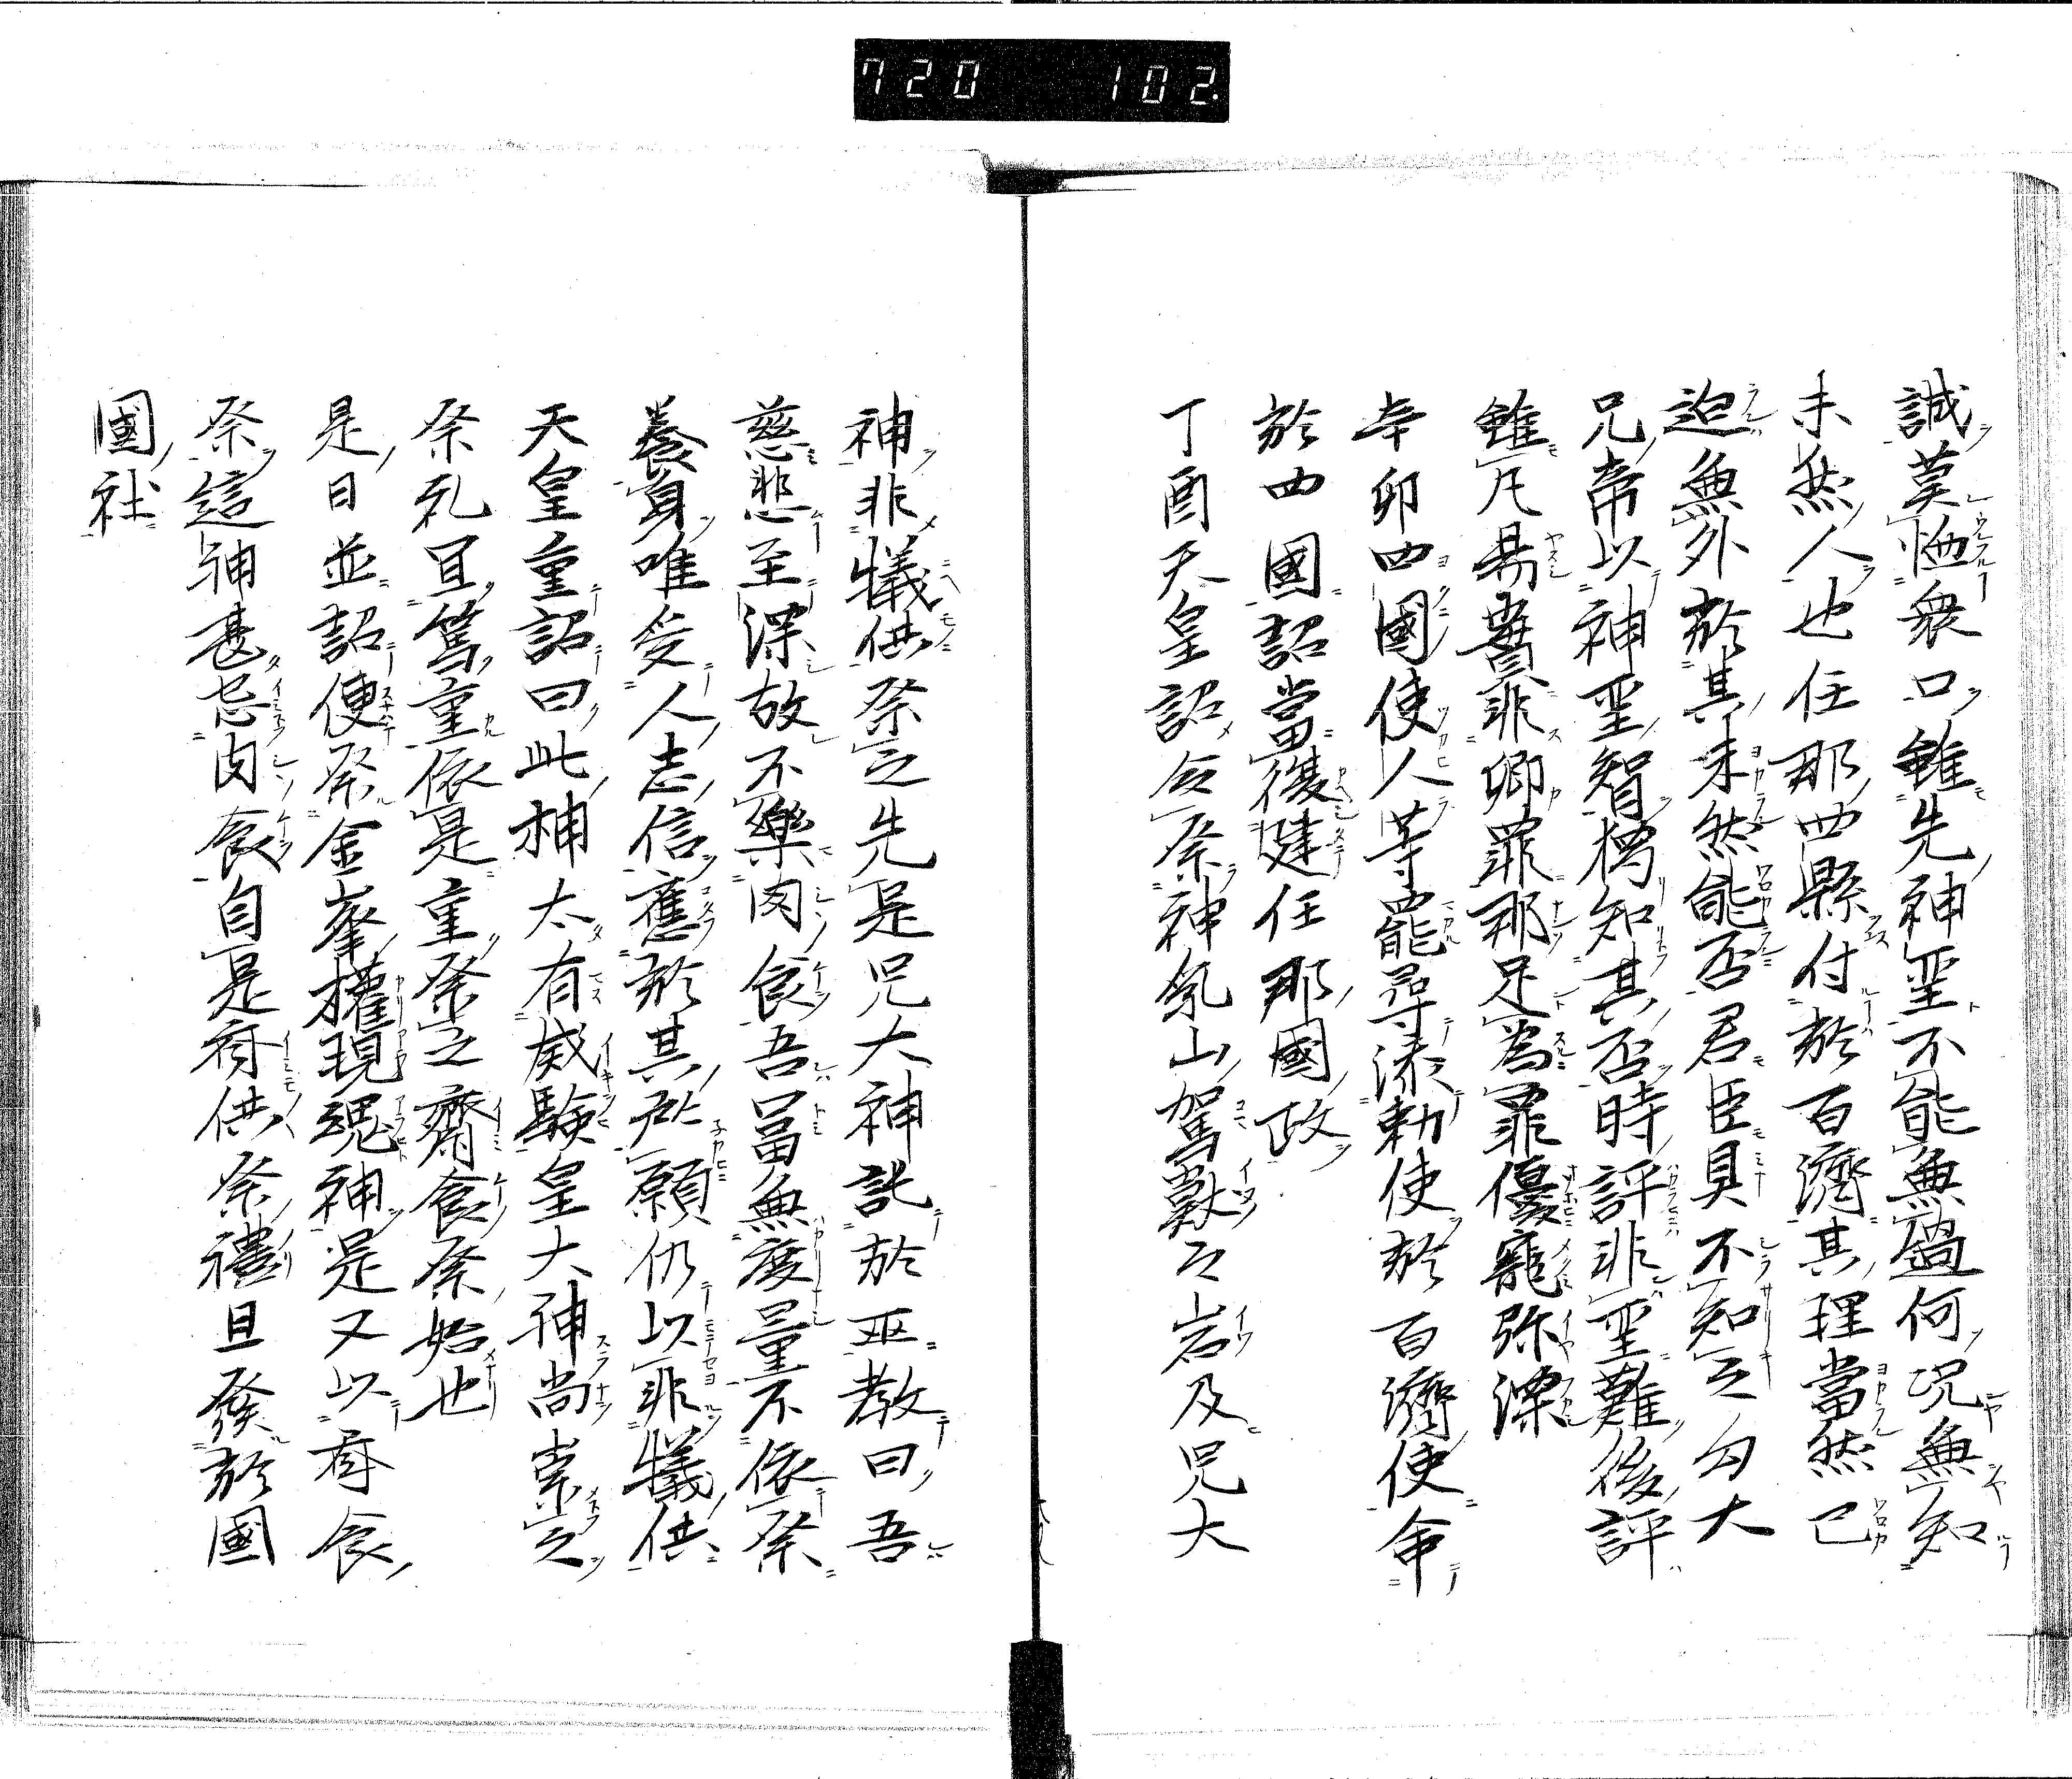 720 102
誠莫恤衆口雖先神聖不能無過何况無知
未然人也任那四縣付於百濟其理當然已
迫無外於其未然能否君臣具不知之勾大
兄帝以神聖智橋知其否時評非聖難後評
雖凡昜貴非卿罪那足為罪優寵弥深
辛卯四國使人等罷尋添勅使於百濟使命
於四國詔當復建任那國政
丁酉天皇詔令祭神氣山駕獻之岩及兒大
神非犠供祭之先是兒大神託於巫教曰吾
慈悲至深故不樂肉食吾畐無度量不依祭
養身唯受人志信應於其所願仍以非犠供
天皇重詔曰此神太有威驗皇大神尚崇之
祭礼宜篤重依是重祭之齋食祭始也
是日並詔使祭金峯權現魂神是又以斎食
祭這神甚忌肉食自是斎供祭禮且發於國
國社